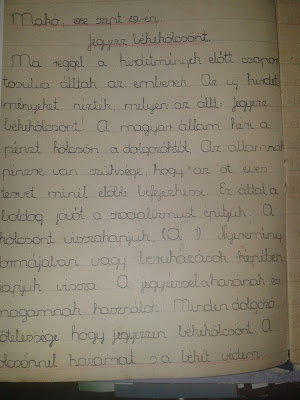 Makó, 1952 szept 29-én.
Jegyezz békekölcsönt.
Ma reggel a hirdetmények előtt csopor
tosulva álltak az emberek. Az uj hirdet
ményeket nézték, melyen az állt: Jegyezz
békekölcsönt! A magyar állam kéri a
pénzt kölcsön a dolgozóktól. Az államnak
pénzre van szüksége, hogy az öt éves
tervet minél előbb befejezhesse. Ez által a
boldog jövőt a szocializmust építjük. A
kölcsönt visszakapjuk. (A !) Nyeremény
formájában vagy beruházások képében
kapjuk vissza. A jegyzéssel a hazának és
magamnak használok. Minden dolgozó
kötelessége hogy jegyezzen békekölcsönt. A
kölcsönnel hazámat s a békét védem.